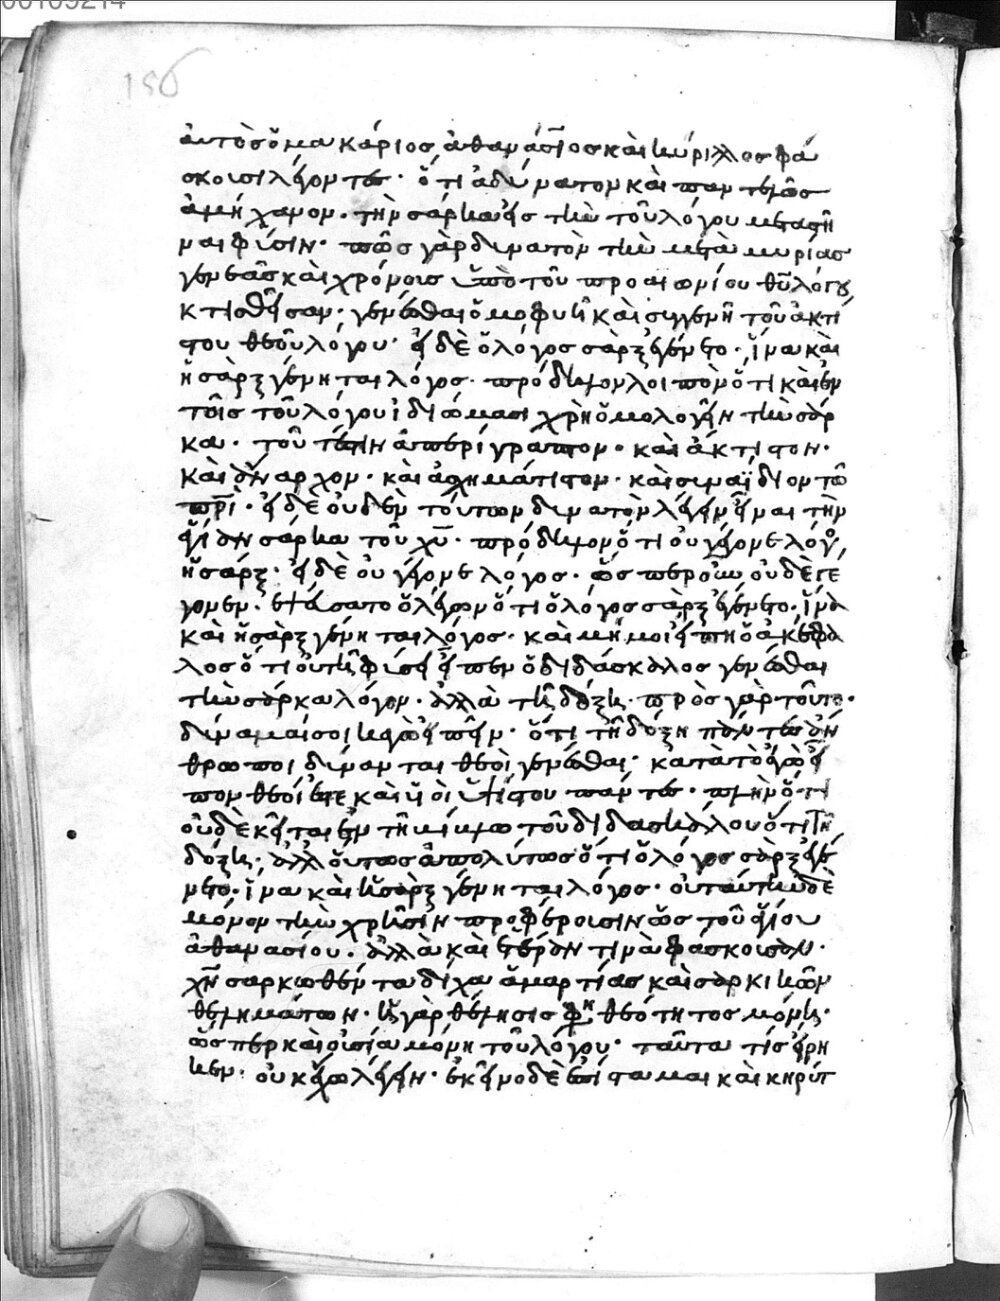 00109214
156
ἀυτὸς ὁ μακάριος ἀθανάσιος καὶ κύριλλος φά
σκουσι λέγοντες · ὅτι ἀδύνατον καὶ παντελῶς
ἀμήχανον · τὴν σάρκα εἰς τὴν τοῦ λόγου μεταβῆ
ναι φύσιν · πῶς γὰρ δυνατὸν τὴν μετὰ μυρίας
γενεὰς καὶ χρόνους ὑπὸ τοῦ προαιωνίου θῦ λόγου
κτισθεῖσαν · γενέσθαι ὁμοφυῆ καὶ συγγενῆ τοῦ ἀκτί
στου θεοῦ λόγου · εἰ δὲ ὁ λόγος σὰρξ ἐγένετο · ἵνα καὶ
ἡ σὰρξ γένηται λόγος · πρόδηλον λοιπὸν ὅτι καὶ ἐν
τοῖς τοῦ λόγου ἰδιώμασι χρὴ ὁμολογεῖν τὴν σάρ
κα · τουτέστιν ἀπερίγραπτον · καὶ ἄκτιστον ·
καὶ ἄναρχον · καὶ ἀσχημάτιστον · καὶ συναΐδιον τῶ
πρι · εἰ δὲ οὐδὲν τούτων δυνατὸν λέγειν εἶναι τὴν
ἁγίαν σάρκα τοῦ χυ · πρόδηλον ὅτι οὐ γέγονε λόγος
ἡ σάρξ · εἰ δὲ οὐ γέγονε λόγος · ὥσπερ οὖν οὐδὲ γέ
γονεν · ἐψεύσατο ὁ λέγων ὅτι ὁ λόγος σὰρξ ἐγένετο · ἵνα
καὶ ἡ σὰρξ γένηται λόγος · καὶ μή μοι εἴπη ὁ ἀκέφα
λος ὅτι οὐ τῆ φύσει εἶπεν ὁ διδάσκαλος γενέσθαι
τὴν σάρκα λόγον · ἀλλὰ τῆ δόξη · πρὸς γὰρ τοῦτο ·
δύναμαί σοι καγὼ εἰπεῖν · ὅτι τῆ δόξη πάντες ἄν
θρωποι δύνανται θεοὶ γενέσθαι · κατὰ τὸ ἐγὼ εἶ
πον θεοί ἐστε καὶ υἱοὶ ὑψίστου πάντες · πλὴν ὅτι
οὐδὲ κεῖται ἐν τῆ φωνῆ τοῦ διδασκάλου ὅτι τῆ
δόξη · ἀλλ οὕτως ἀπολύτως ὅτι ὁ λόγος σὰρξ ἐγέ
νετο · ἵνα καὶ ἡ σὰρξ γένηται λόγος · οὐ ταύτην δὲ
μόνον τὴν χρῆσιν προφέρουσιν ὡς τοῦ ἁγίου
ἀθανασίου · ἀλλὰ καὶ ἑτέραν τινὰ φάσκουσαν ·
χν σαρκωθέντα δίχα ἁμαρτίας καὶ σαρκικῶν
θελημάτων · ἡ γὰρ θέλησις φη θεότητος μόνης ·
ὥσπερ καὶ οὐσία μόνη τοῦ λόγου · ταῦτα τίς εἴρη
κεν · οὐκ ἔχω λέγειν · ἐκεῖνο δὲ ἐπίσταμαι καὶ κηρύτ